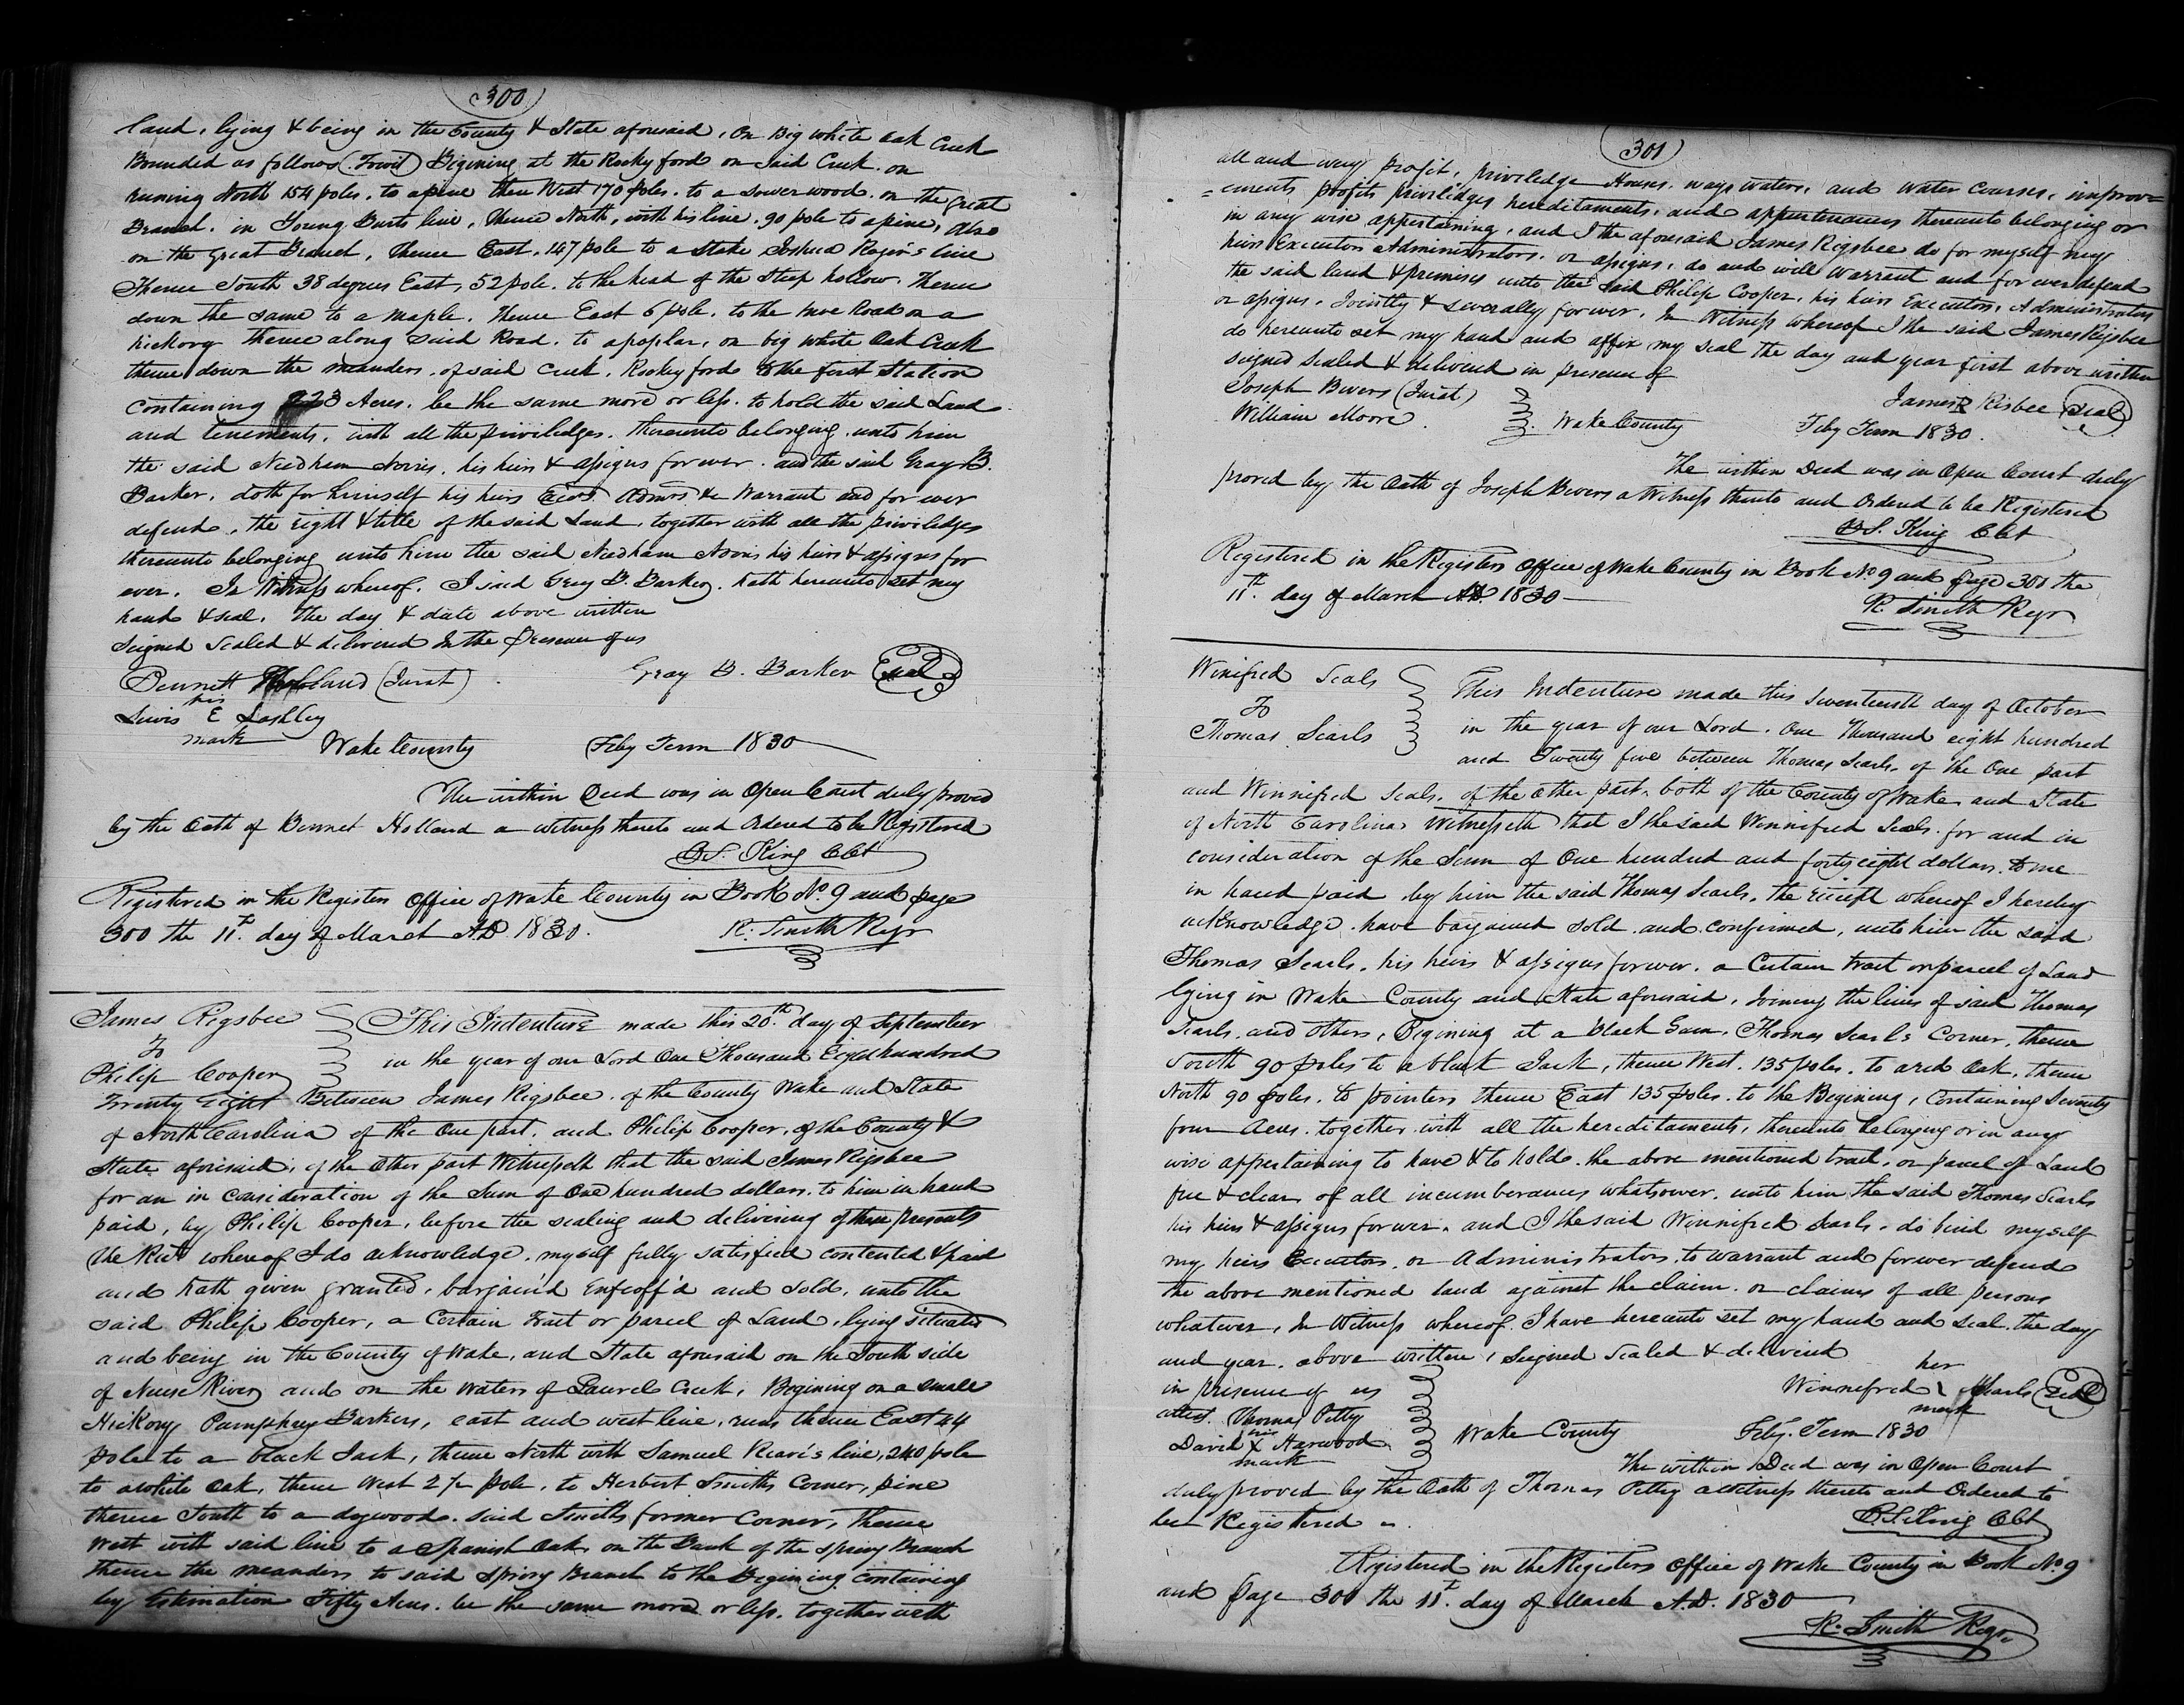 300
land, lying & being in the County & State aforesaid, On Big white oak Creek
Bounded as follows (Towit) Begining at the Rocky ford on said Creek. on
runing North 154 poles. to a pine then West 170 poles. to a sower wood. on the great
Branch. in Young Burts line, thence North, with his line. 90 pole to a pine, also
on the great Branch, thence East. 147 pole to a stake Joshua Roger's line
Thence South 38 degrees East, 52 pole. to the head of the Steep hollow. Thence
down the same to a maple. thence East 6 pole. to the Road on a
hickory thence along said Road. to a poplar, on big white Oak Creek
thence down the meanders. of said Creek. Rockey ford to the first Station
Containing 223 Acres. be the same more or less. to hold the said Land
and tenements. with all the priviledges. thereunto belonging. unto him
the said Needham Norris. his heirs & assigns forever. and the said Gray B.
Barker, doth for himself his heirs Exors Admrs &c Warrant and for ever
defend, the right & title of the said Land, together with all the priviledges
thereunto belonging unto him the said Needham Norris his heirs & assigns for
ever. In Witness whereof. I said Gray B. Barker. hath hereunto set my
hand & seal. the day & date above written
Seigned Sealed & delivered In the Presence of us
Bennett Holland (Jurat) Gray B. Barker Seal
his
Lewis E Lashley
mark Wake County Feby Term 1830
The within Deed was in Open Court duly proved
by the Oath of Bennet Holland a witness thereto and Ordered to be Registered
B.S. King Clk
Registered in the Registers Office of Wake County in Book No. 9 and page
300 the 11th. day of March A.D. 1830. R. Smith Regr
James Rigsbee
To
Philip Cooper
This Indenture made this 20th. day of September
in the year of our Lord One Thousand Eight hundred
Twenty Eight Between James Rigsbee. of the County Wake and State
of North Carolina of the One part. and Philip Cooper, of the County &
State aforesaid, of the Other part Witnesseth that the said James Rigsbee
for an in consideration of the Sum of One hundred dollars. to him in hand
paid, by Philip Cooper, before the sealing and delivering of these presents
the Rect whereof I do acknowledge. myself fully satisfied contented & paid
and hath given granted, bargain'd Enfeoff'd and Sold, unto the
said Philip Cooper, a Certain Tract or parcel of Land, lying situated
and being in the County of Wake, and State aforesaid on the South side
of Neuse River and on the waters of Laurel Creek, Begining on a small
Hickory Pumphrey Barkers, east and west line, runs thence East 44
pole to a black Jack, thence North with Samuel line, 240 pole
to a white Oak, thence West pole. to Herbert Smiths Corner, pine
thence South to a dogwood. said Smiths former Corner, Thence
West with said line to a Spanish Oak. on the Bank of the Spring Branch
thence the meanders to said Spring Branch to the Begining. Containing
by Estimation Fifty Acres. be the same more or less. together with
301
all and every profit, priviledge Houses. ways waters. and water courses. improve=
=ements profits priviledges hereditaments, and appurtenances thereunto belonging or
in any wise appertaining, and I the aforesaid James Rigsbee do for myself my
heirs Executors Administrators. or assigns, do and will Warrant and for ever defend
the said land & premises unto the said Philip Cooper, his heirs Executors, Administrators
or assigns. Jointly & severally forever. In Witness whereof I the said James Rigsbee
do hereunto set my hand and affix my seal the day and year first above written
signed Sealed & delivered in presence of
Joseph Bivers (Jurat) James Risbee Seal
William Moore. Wake County Feby Term 1830.
The within Deed was in Open Court duly
proved by the Oath of Joseph Bivers a Witness thereto and Ordered to be Registered
B.S. King Clk
Registered in the Registers Office of Wake County in Book No 9 and page 301 the
11th. day of March A.D. 1830
R. Smith Regr
Winifred Seals
To
Thomas Searls
This Indenture made this Seventeenth day of October
in the year of our Lord. One Thousand eight hundred
and Twenty five between Thomas Searls. of the One part
and Winnifred Seals. of the Other part. both of the County of Wake and State
of North Carolina Witnesseth that I the said Winnifred Seals. for and in
consideration of the Sum of One hundred and forty eight dollars. to me
in hand paid by him the said Thomas Searls, the receipt whereof I hereby
acknowledge. have bargained sold and confirmed, unto him the said
Thomas Searls. his heirs & assigns forever. a Certain tract or parcel of Land
lying in Wake County and State aforesaid, Joining the lines of said Thomas
Searls. and others, Begining at a black Gum, Thomas Searls Corner, thence
South 90 poles to a black Jack, thence West. 135 poles. to a red Oak, thence
North 90 poles. to pointers thence East 135 poles. to the Begining, Containing Seventy
four Acres. together with all the hereditaments, thereunto belonging or in any
wise appertaining to have & to hold. the above mentioned tract. or parcel of Land
free & clear of all incumberances whatsoever. unto him the said Thomas Searls
his heirs & assigns forever. and I the said Winnifred Searls. do bind myself
my heirs Executors. or Administrators. to warrant and forever defend
the above mentioned land against the claim. or claims of all persons
whatever, In Witness whereof. I have hereunto set my hand and seal. the day
and year. above written, Seigned Sealed & delivered
in presence of us her
attest. Thomas Petty Winnefred Searls Seal
his mark
David X Harwood Wake County Feby. Term 1830
mark
The within Deed was in Open Court
duly proved by the Oath of Thomas Pettey a witness thereto and Ordered to
be Registered B.S. King Clk
Registered in the Registers Office of Wake County in Book No. 9
and page 301 the 11th. day of March A.D. 1830
R. Smith Regr.